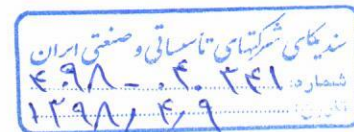 سندیکای شرکتهای تأسیساتی و صنعتی ایران
شماره: ۴۰۹۸ - ۰۴۰۳۴۱
تاریخ: ۱۳۹۸/۴/۹